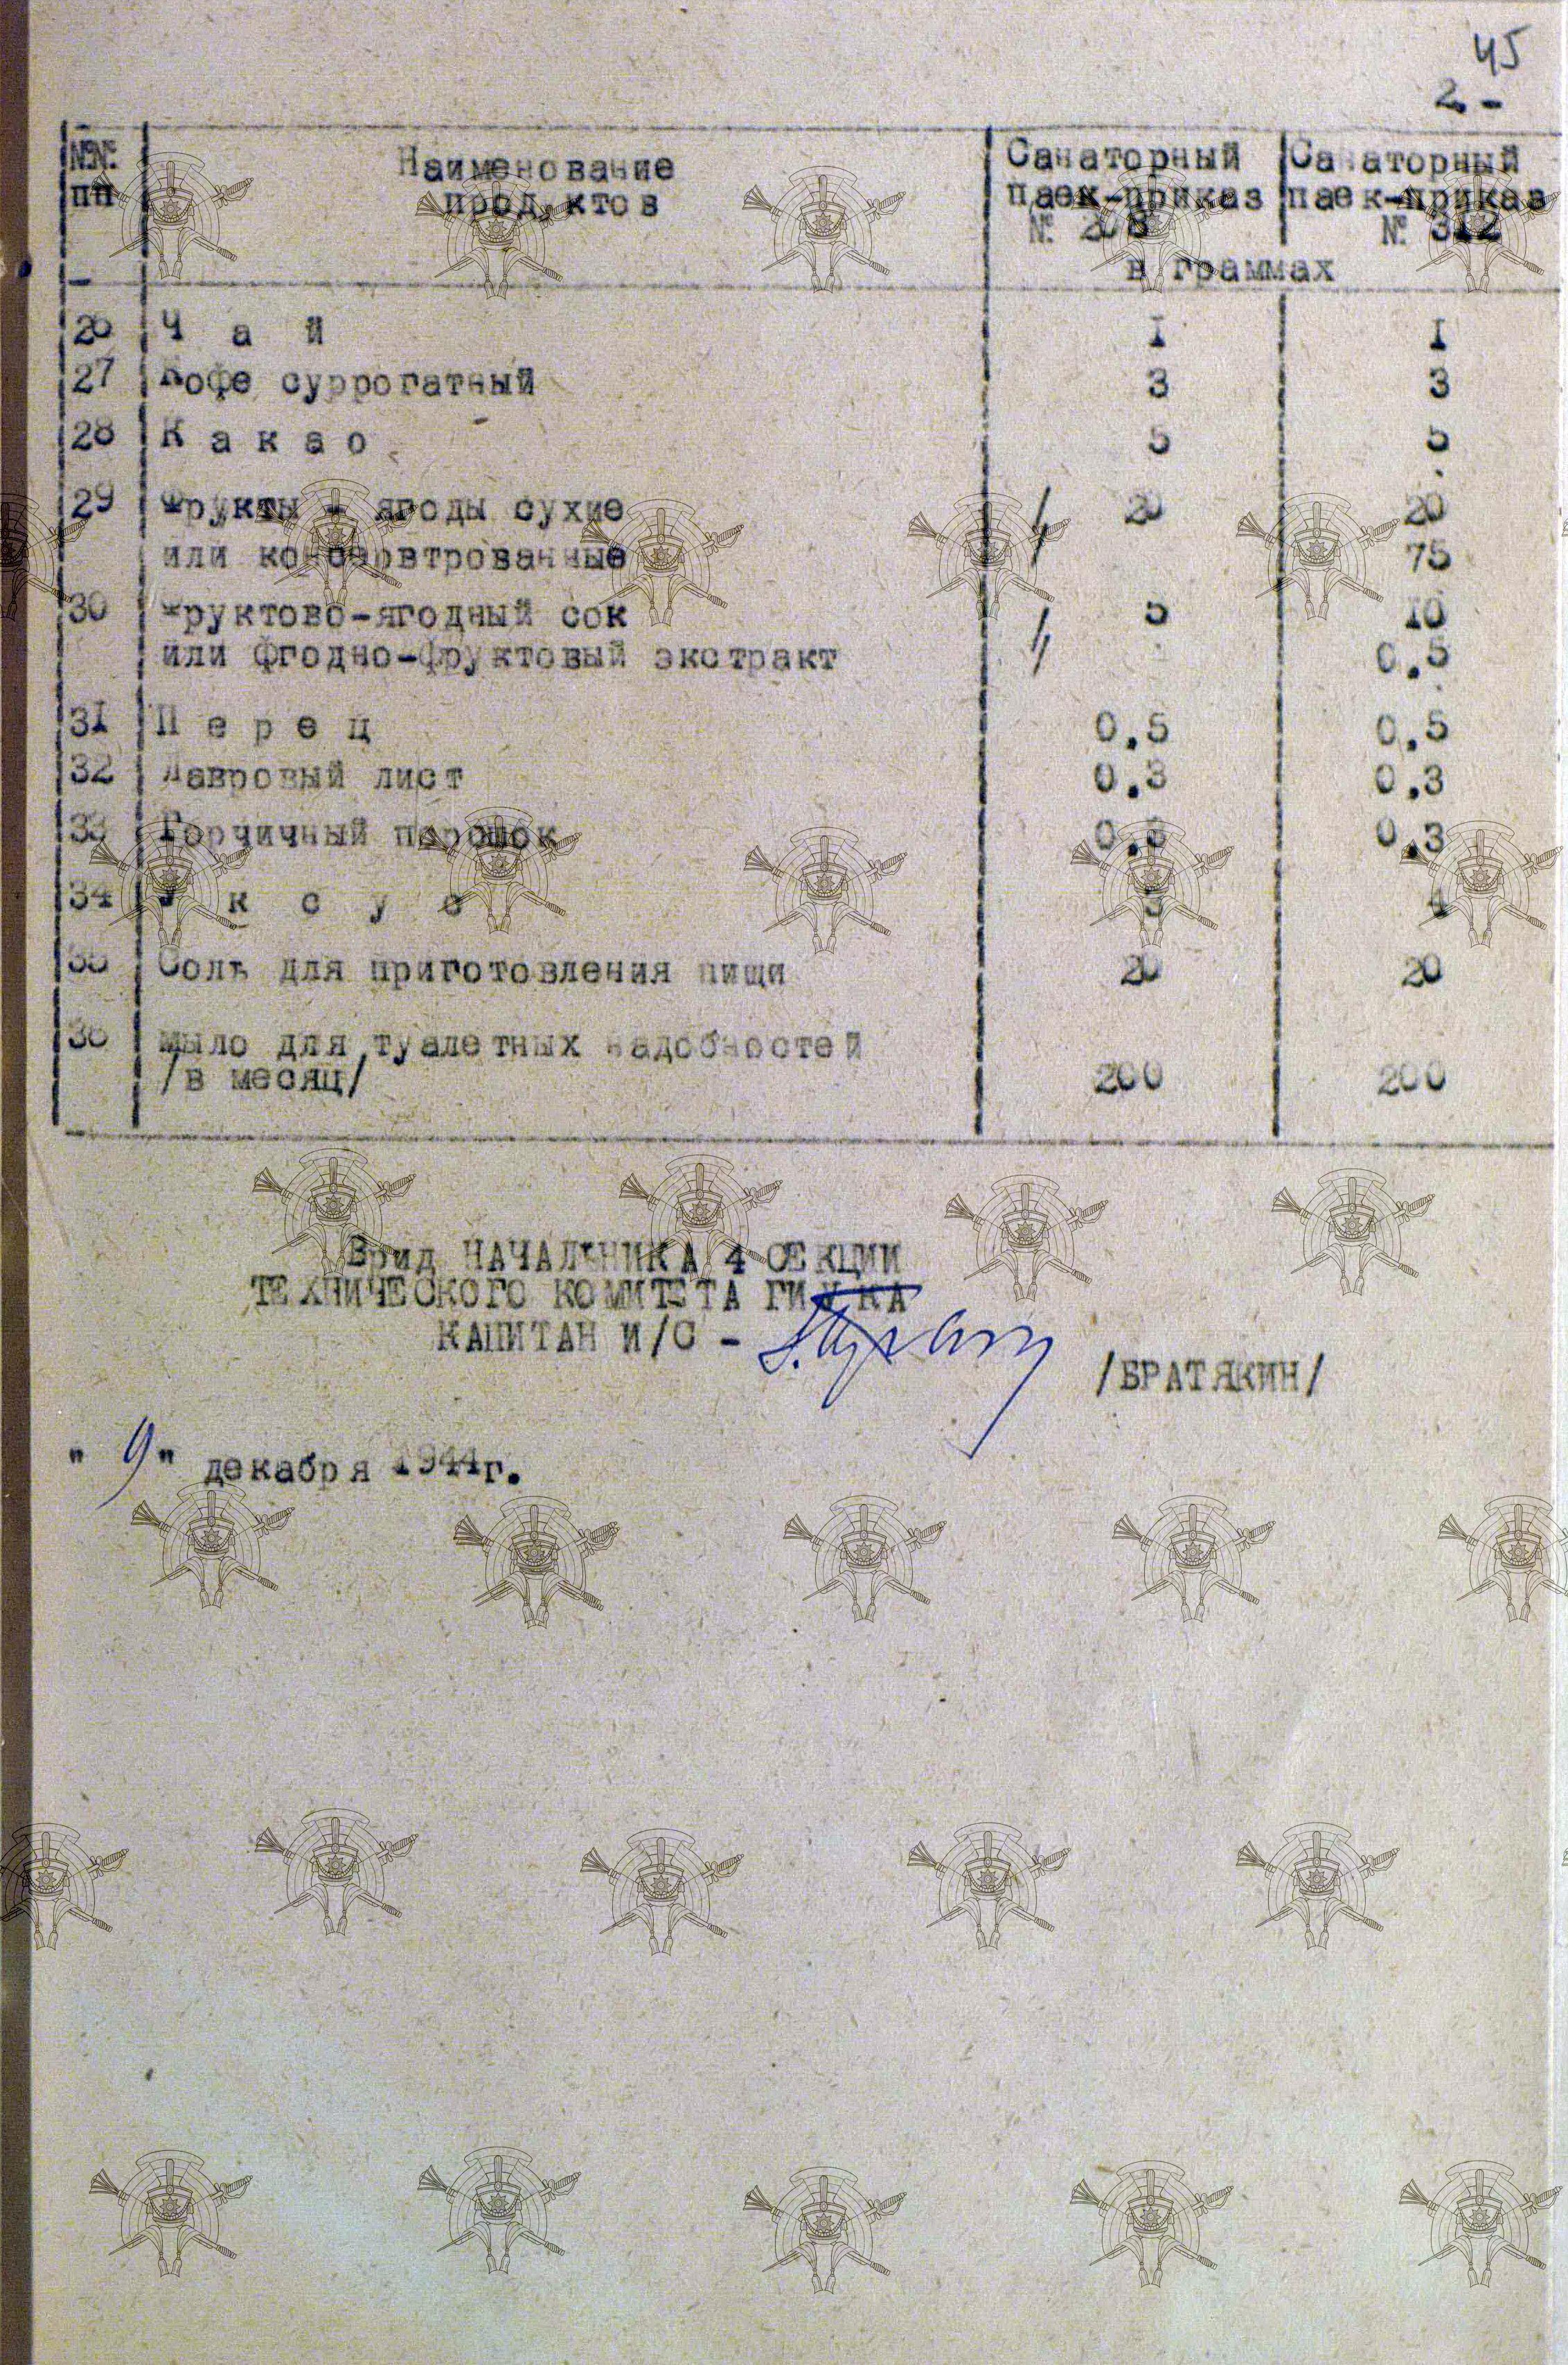 45
2.-
№№ Наименование Санаторный Санаторный
пп продуктов паек-приказ паек-приказ
№ 208 № 312
в граммах
26 Ч а й I I
27 Кофе суррогатный 3 3
28 К а к а о 5 5
29 Фрукты и ягоды сухие 20 20
или консервтрованные 75
30 Фруктово-ягодный сок 5 10
или фгодно-фруктовый экстракт 0,5
3I П е р е ц 0,5 0,5
32 Лавровый лист 0,3 0,3
33 Горчичный порошок 0,3
34 У к с у с 3 4
35 Соль для приготовления пищи 20 20
36 Мыло для туалетных надобностей
/в месяц/ 200 200
Врид НАЧАЛЬНИКА 4 СЕКЦИИ
ТЕХНИЧЕСКОГО КОМИТЕТА
КАПИТАН И/С -
/БРАТЯКИН/
" 9" декабря 1944г.